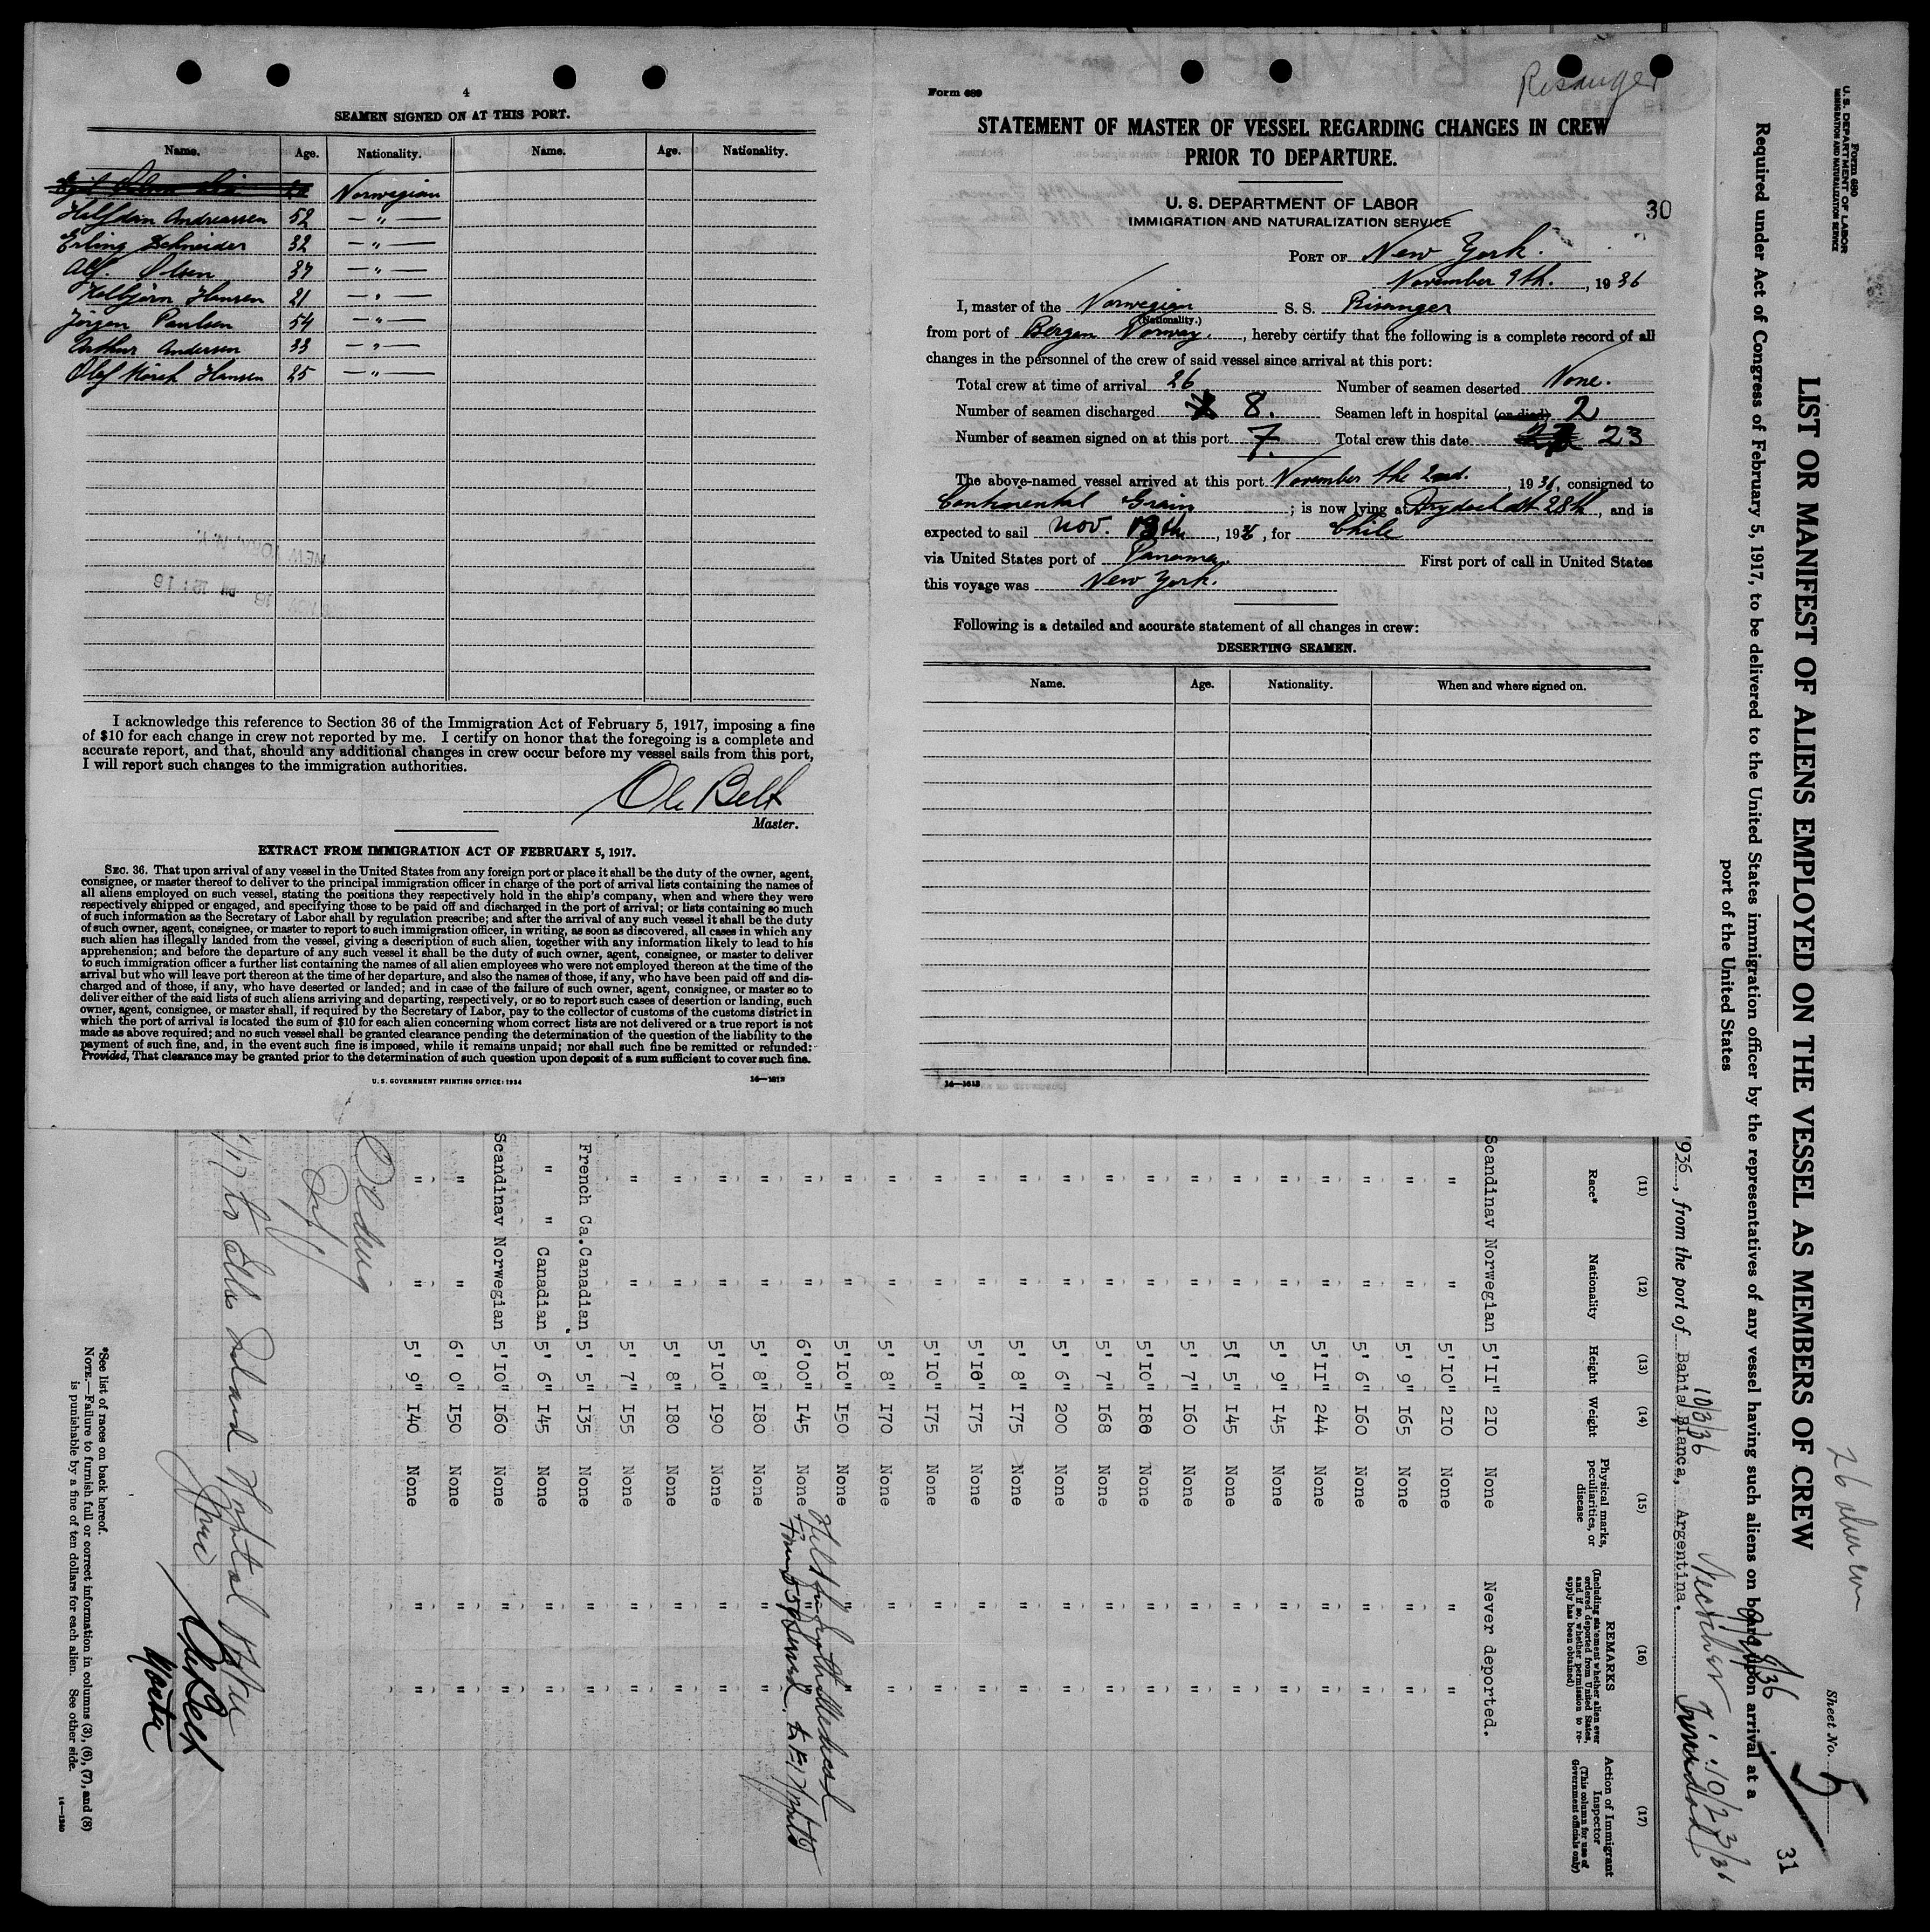 4
SEAMEN SIGNED ON AT THIS PORT.
Name. Age. Nationality. Name. Age. Nationality.
Norwegian
Halfdan Andreassen 52 — " —
Erling Schneider 32 — " —
Alf. Olsen 37 — " —
Kolbjørn Hansen 21 — " —
Jørgen Paulsen 54 — " —
Arthur Andersen 33 — " —
Olaf Hansen 25 — " —
I acknowledge this reference to Section 36 of the Immigration Act of February 5, 1917, imposing a fine
of $10 for each change in crew not reported by me. I certify on honor that the foregoing is a complete and
accurate report, and that, should any additional changes in crew occur before my vessel sails from this port,
I will report such changes to the immigration authorities.
Ole Belt
Master.
EXTRACT FROM IMMIGRATION ACT OF FEBRUARY 5, 1917.
SEC. 36. That upon arrival of any vessel in the United States from any foreign port or place it shall be the duty of the owner, agent,
consignee, or master thereof to deliver to the principal immigration officer in charge of the port of arrival lists containing the names of
all aliens employed on such vessel, stating the positions they respectively hold in the ship's company, when and where they were
respectively shipped or engaged, and specifying those to be paid off and discharged in the port of arrival; or lists containing so much
of such information as the Secretary of Labor shall by regulation prescribe; and after the arrival of any such vessel it shall be the duty
of such owner, agent, consignee, or master to report to such immigration officer, in writing, as soon as discovered, all cases in which any
such alien has illegally landed from the vessel, giving a description of such alien, together with any information likely to lead to his
apprehension; and before the departure of any such vessel it shall be the duty of such owner, agent, consignee, or master to deliver
to such immigration officer a further list containing the names of all alien employees who were not employed thereon at the time of the
arrival but who will leave port thereon at the time of her departure, and also the names of those, if any, who have been paid off and dis-
charged and of those, if any, who have deserted or landed; and in case of the failure of such owner, agent, consignee, or master so to
deliver either of the said lists of such aliens arriving and departing, respectively, or so to report such cases of desertion or landing, such
owner, agent, consignee, or master shall, if required by the Secretary of Labor, pay to the collector of customs of the customs district in
which the port of arrival is located the sum of $10 for each alien concerning whom correct lists are not delivered or a true report is not
made as above required; and no such vessel shall be granted clearance pending the determination of the question of the liability to the
payment of such fine, and, in the event such fine is imposed, while it remains unpaid; nor shall such fine be remitted or refunded:
Provided, That clearance may be granted prior to the determination of such question upon deposit of a sum sufficient to cover such fine.
U. S. GOVERNMENT PRINTING OFFICE: 1934
Risanger
Form 689
STATEMENT OF MASTER OF VESSEL REGARDING CHANGES IN CREW
PRIOR TO DEPARTURE.
U. S. DEPARTMENT OF LABOR
IMMIGRATION AND NATURALIZATION SERVICE
30
PORT OF New York.
November 9th., 1936
I, master of the Norwegian S. S. Risanger
(Nationality.)
from port of Bergen Norway., hereby certify that the following is a complete record of all
changes in the personnel of the crew of said vessel since arrival at this port:
Total crew at time of arrival 26 Number of seamen deserted None.
Number of seamen discharged 8. Seamen left in hospital (or died) 2
Number of seamen signed on at this port 7. Total crew this date 23
The above-named vessel arrived at this port November the 2nd., 1936, consigned to
Continental Grain; is now lying at Drydock 28th, and is
expected to sail Nov. 13th, 1936, for Chile
via United States port of Panama. First port of call in United States
this voyage was New York.
Following is a detailed and accurate statement of all changes in crew:
DESERTING SEAMEN.
Name. Age. Nationality. When and where signed on.
Form 680
U. S. DEPARTMENT OF LABOR
IMMIGRATION AND NATURALIZATION SERVICE
26
Sheet No. 5
31
LIST OR MANIFEST OF ALIENS EMPLOYED ON THE VESSEL AS MEMBERS OF CREW
Required under Act of Congress of February 5, 1917, to be delivered to the United States immigration officer by the representatives of any vessel having such aliens on board upon arrival at a
port of the United States
1936, from the port of Bahia Blanca, Argentina.
10/3/36
(11) (12) (13) (14) (15) (16) (17)
Race* Nationality Height Weight Physical marks, peculiarities, or disease REMARKS (Including statement whether alien ever ordered deported from United States, and if so, whether permission to re-apply has been obtained) Action of Immigrant Inspector (This column for use of Government officials only)
Scandinav Norwegian 5'II" 2I0 None Never deported.
" " 5'I0" 2I0 None " "
" " 5' 9" I65 None " "
" " 5' 6" I60 None " "
" " 5'II" 244 None " "
" " 5' 9" I45 None " "
" " 5' 5" I45 None " "
" " 5' 7" I60 None " "
" " 5'I0" I80 None " "
" " 5' 7" I68 None " "
" " 5' 6" 200 None " "
" " 5' 8" I75 None " "
" " 5'I0" I75 None " "
" " 5'I0" I75 None " "
" " 5' 8" I70 None " "
" " 5'I0" I50 None " "
" " 6'00" I45 None " "
" " 5' 8" I80 None " "
" " 5'I0" I90 None " "
" " 5' 8" I80 None " "
" " 5' 7" I55 None " "
French Ca. Canadian 5' 5" I35 None " "
" " Canadian 5' 6" I45 None " "
Scandinav Norwegian 5'I0" I60 None " "
" " 6' 0" I50 None " "
" " 5' 9" I40 None " "
Ellis Island Hospital
Ole Belt
Master
*See list of races on back hereof.
NOTE.—Failure to furnish full or correct information in columns (3), (6), (7), and (8)
is punishable by a fine of ten dollars for each alien. See other side.